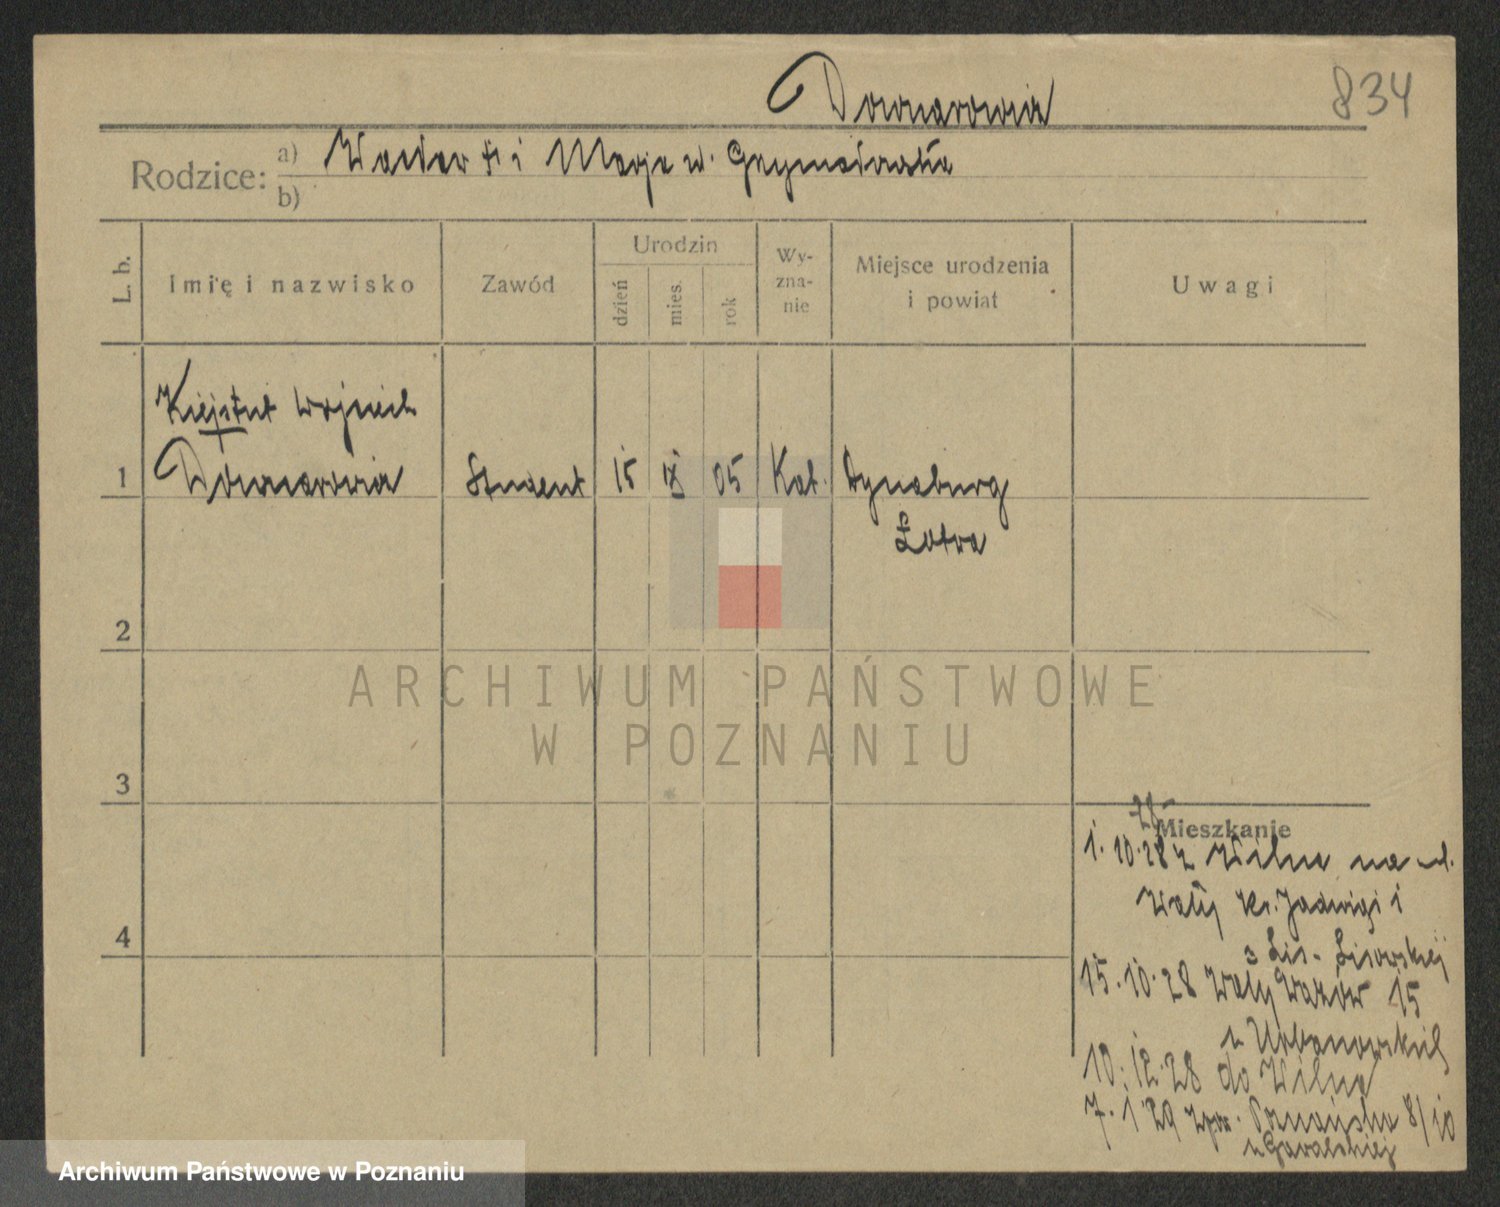 Downarowicz
834
Rodzice:
a) Wacław † i Marja
b)
L. b.
Imię i nazwisko
Zawód
Urodzin
dzień
mies.
rok
Wy-
zna-
nie
Miejsce urodzenia
i powiat
Uwagi
Kiejstut Wojciech
1 Downarowicz Student 15 05 Kat. Dyneburg
Łotwa
2
3
4
ARCHIWUM PAŃSTWOWE
W POZNANIU
Mieszkanie
1. 10. 28 z Wilna na ul.
Wały Kr. Jadwigi 1
Lisowskiej
15. 10. 28 Wały Wazów 15
u Urbanowskich
10. 12. 28 do Wilna
7. 1 29 Poznańska 8/10
Archiwum Państwowe w Poznaniu